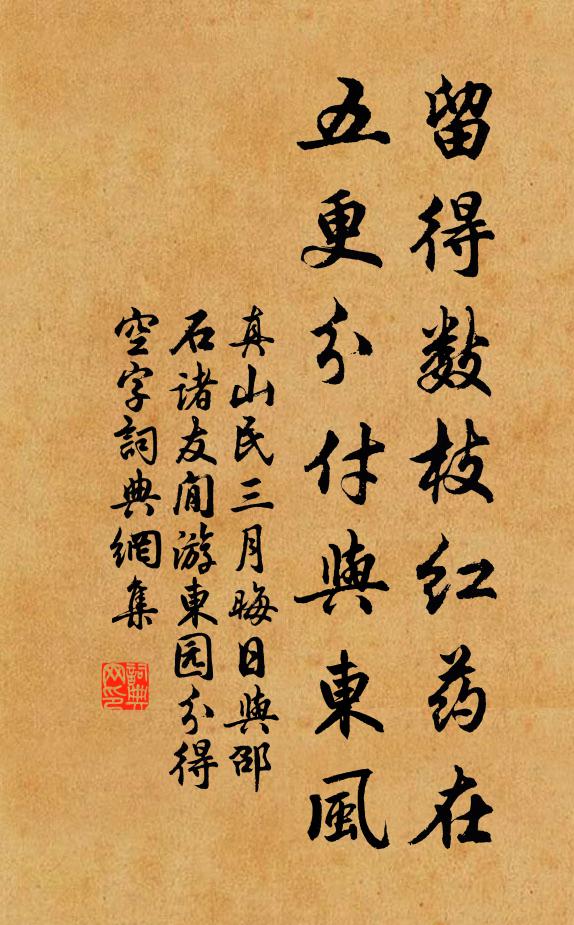 留得数枝红药在
五更分付與東風
真山民三月晦日與邵
石诸友閒游東园分得
空字詞典網集
詞典
网印